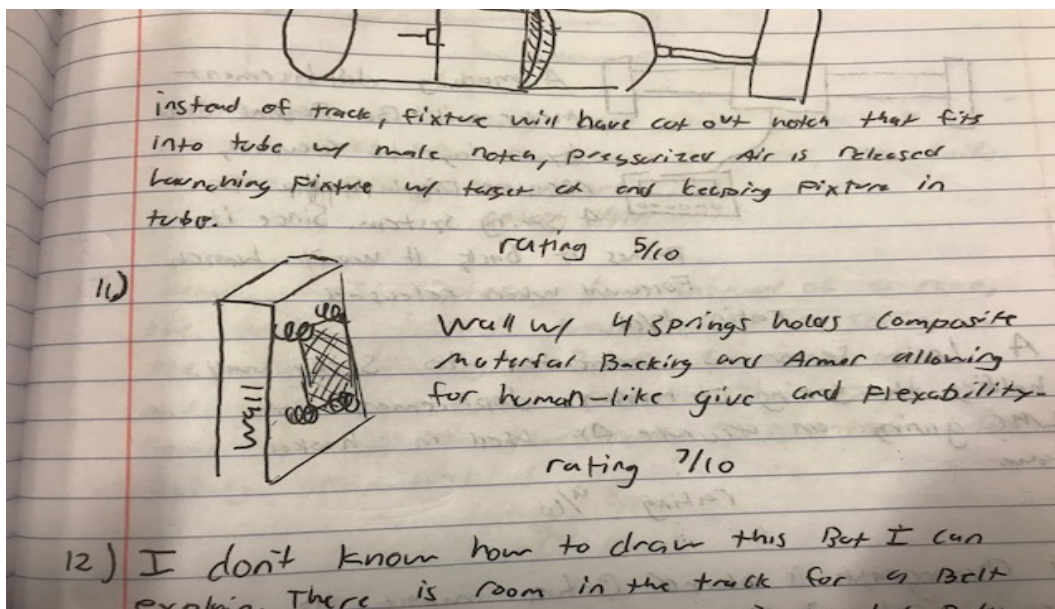 instead of track, fixture will have cut out notch that fits
into tube w/ male notch, pressurized Air is released
launching fixture w/ target at end keeping fixture in
tube.
rating 5/10
11)
Wall w/ 4 springs holds Composite
Material Backing and Armor allowing
for human-like give and Flexability.
wall
rating 7/10
12) I don't know how to draw this But I can
explain. There is room in the track for a Belt